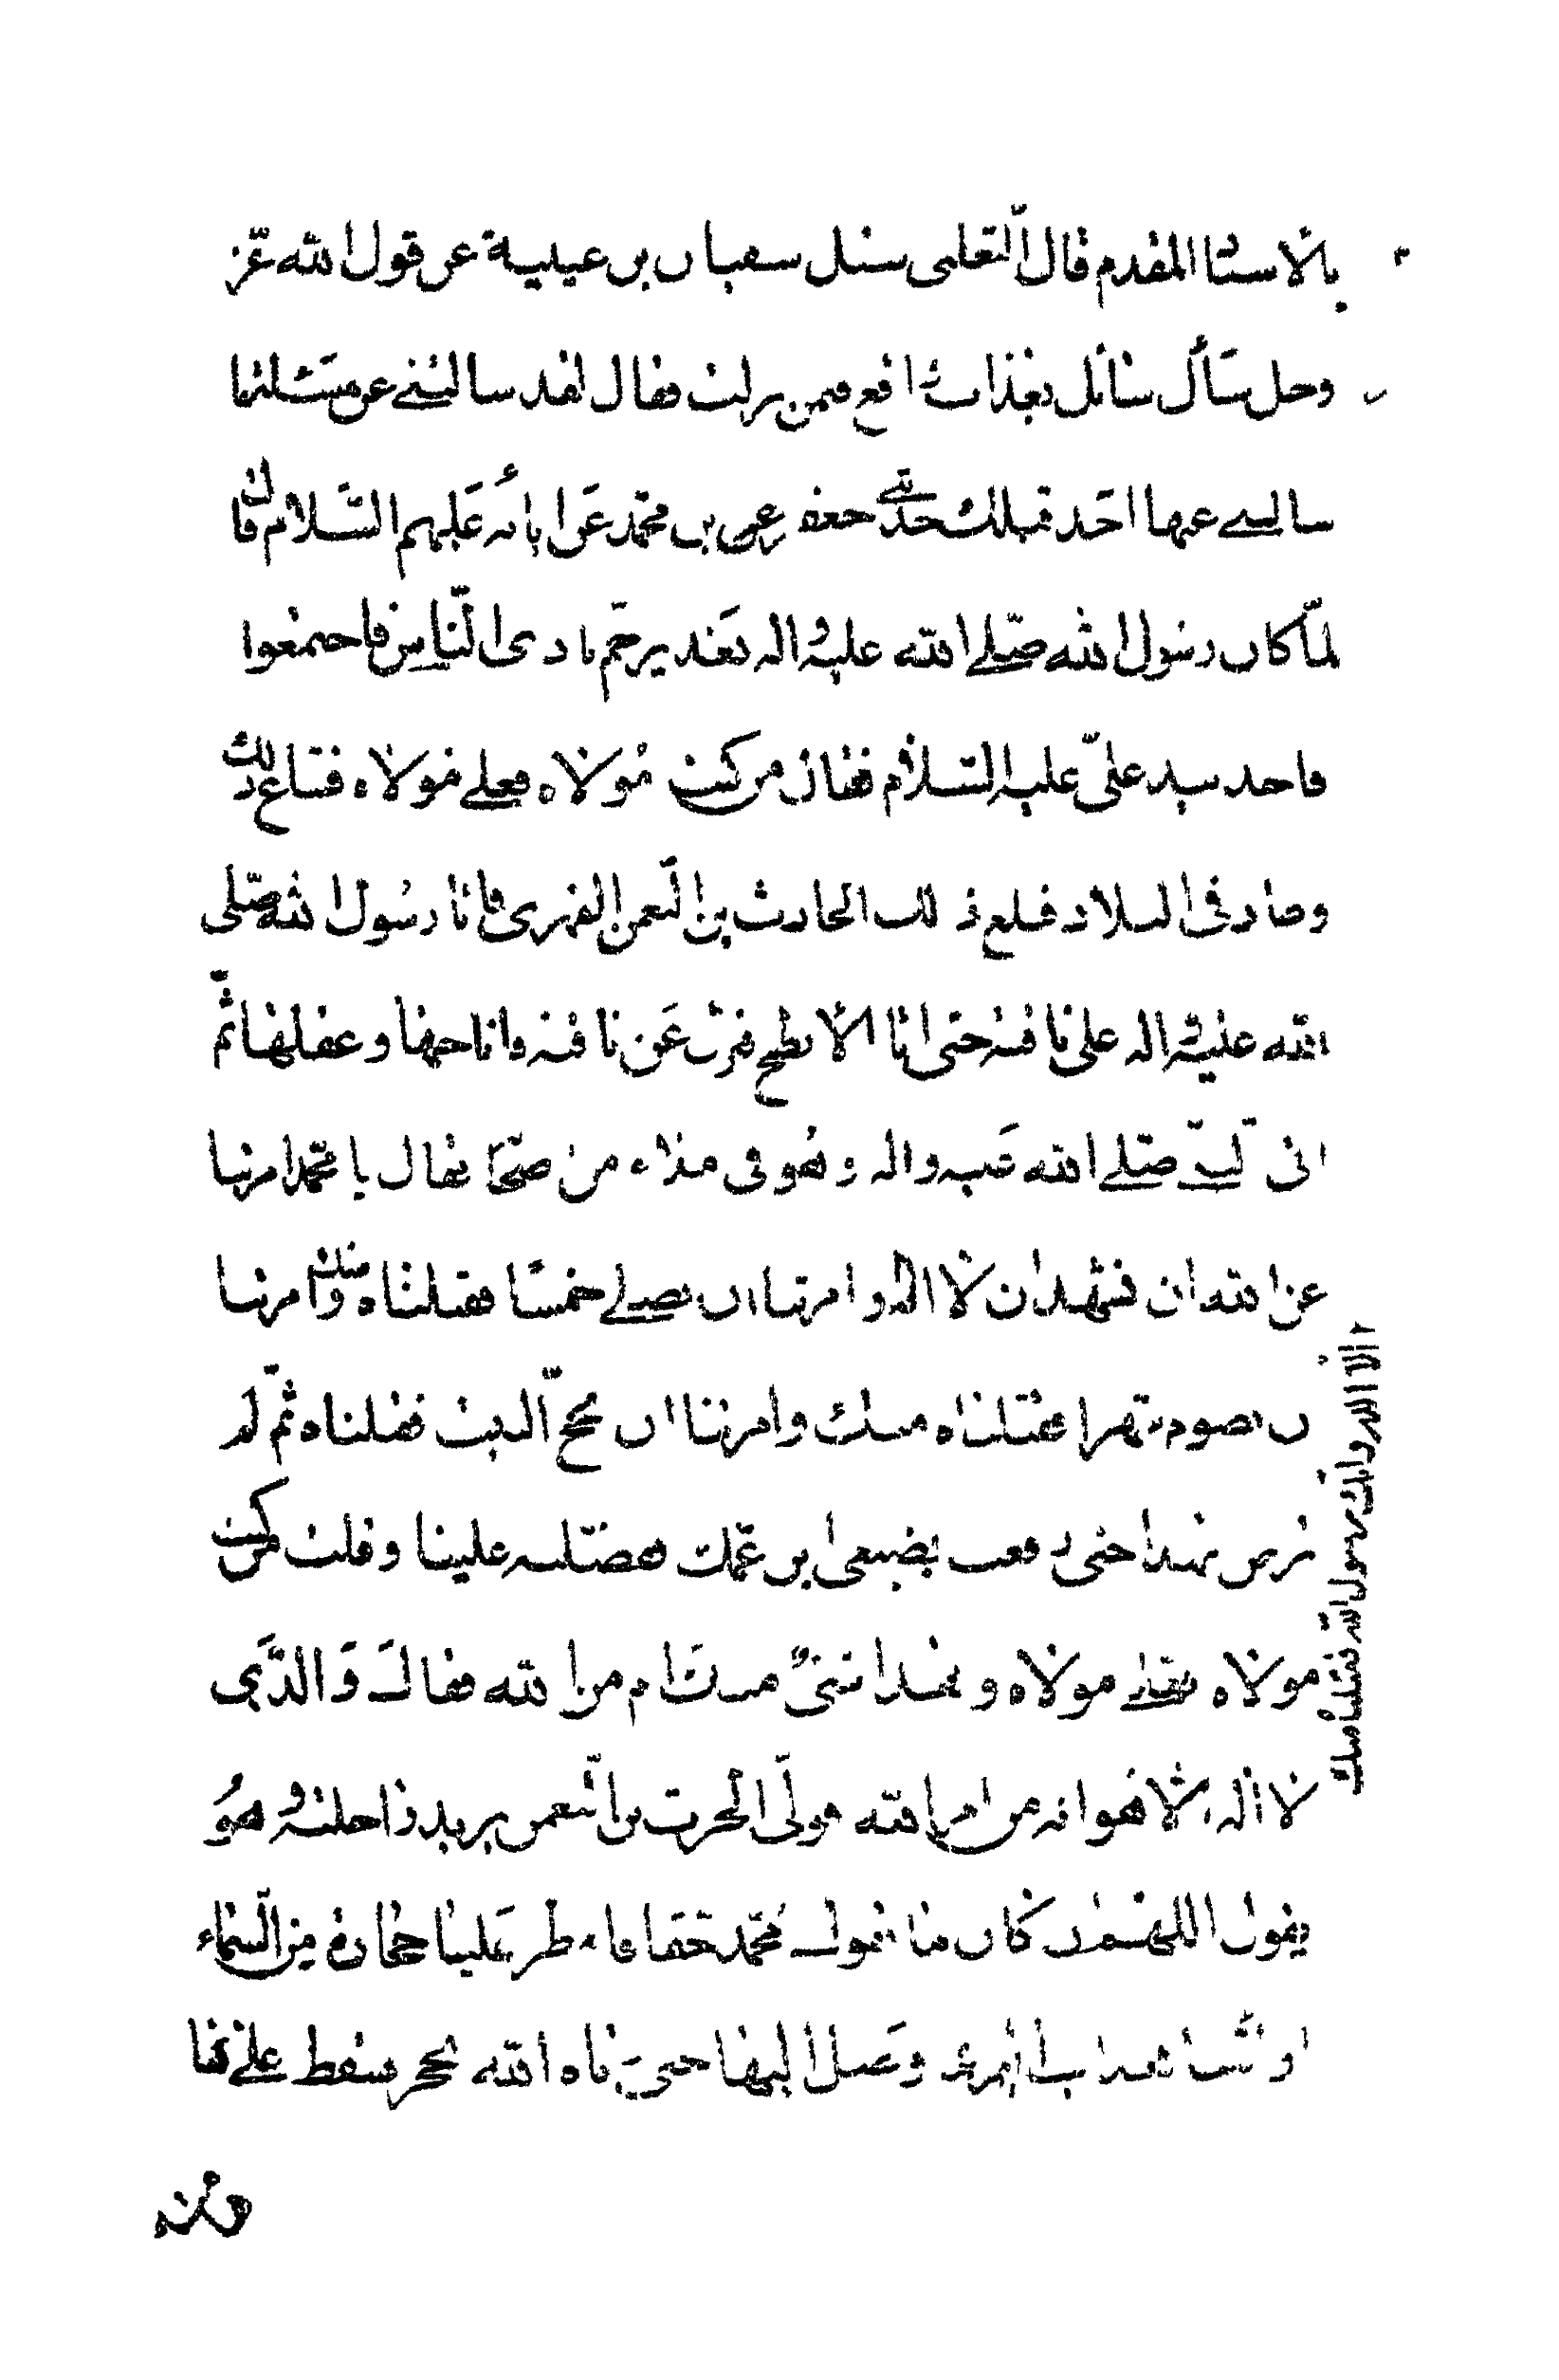 بالاسناد المقدم قال الثعلبى سئل سفيان بن عيينة عن قول الله عز
وجل سأل سائل بعذاب واقع فيمن نزلت فقال لقد سالتنى عن مسئلة ما
سالنى عنها احد قبلك حدثنى جعفر بن محمد عن ابائه عليهم السلام قال
لما كان رسول الله صلى الله عليه واله بغدير خم نادى الناس فاجتمعوا
فاخذ بيد على عليه السلام فقال من كنت مولاه فعلى مولاه فشاع ذلك
وطار فى البلاد فبلغ ذلك الحارث بن النعمن الفهرى فاتا رسول الله صلى
الله عليه واله على ناقته حتى اتا الابطح فنزل عن ناقته واناخها وعقلها ثم
اتى النبى صلى الله عليه واله وهو فى ملاء من صحابه فقال يا محمد امرتنا
عن الله ان نشهد ان لا اله وامرتنا ان نصلى خمسا فقبلناه منك وامرتنا
الا الله وانك رسول الله فقبلناه منك
ان نصوم شهرا فقبلناه منك وامرتنا ان نحج البيت فقبلناه ثم لم
ترض بهذا حتى رفعت بضبعى ابن عمك ففضلته علينا وقلت من كنت
مولاه فعلى مولاه وهذا شىء منك ام من الله فقال والذى
لا اله الا هو انه من امر الله فولى الحرث بن النعمن يريد راحلته وهو
يقول اللهم ان كان ما يقول محمد حقا فامطر علينا حجارة من السماء
او ائتنا بعذاب اليم فما وصل اليها حتى رماه الله بحجر فسقط على هامته